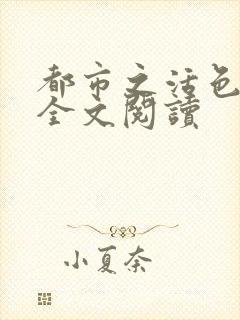 都市之活色
全文閱讀
小夏奈